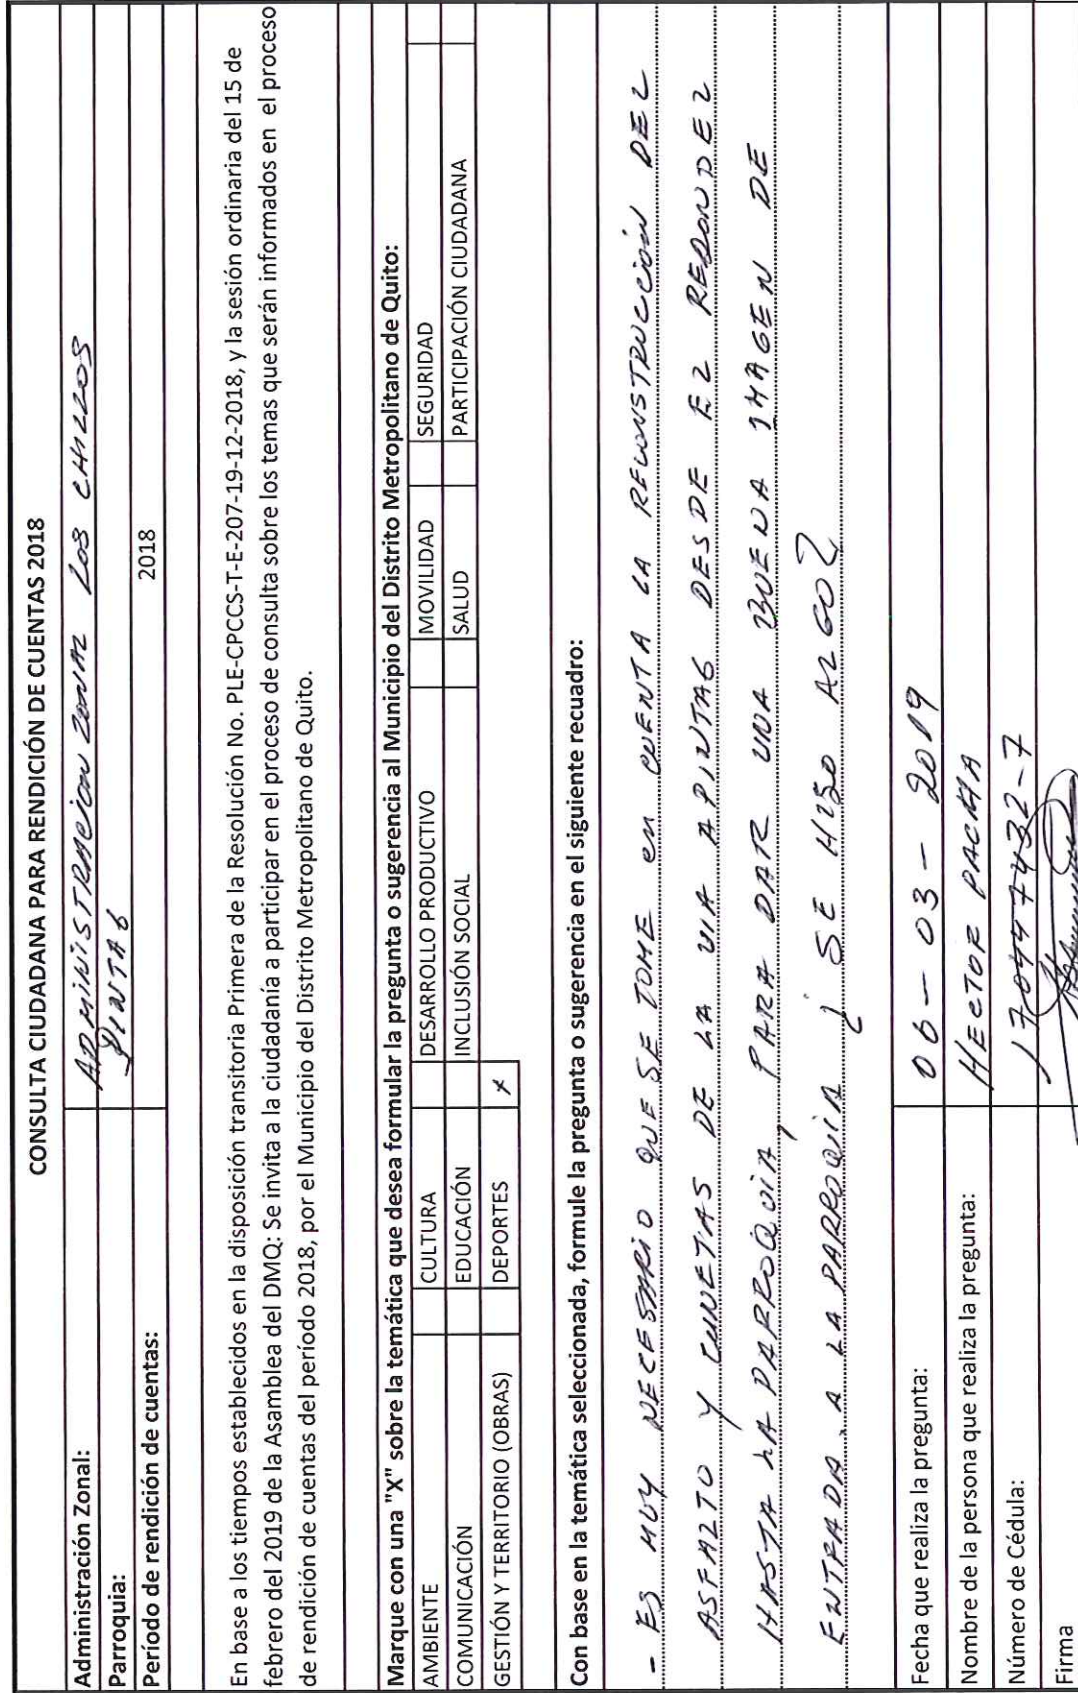 CONSULTA CIUDADANA PARA RENDICIÓN DE CUENTAS 2018
Administración Zonal: ADMINISTRACION ZONAL LOS CHILLOS
Parroquia: PINTAG
Período de rendición de cuentas: 2018
En base a los tiempos establecidos en la disposición transitoria Primera de la Resolución No. PLE-CPCCS-T-E-207-19-12-2018, y la sesión ordinaria del 15 de
febrero del 2019 de la Asamblea del DMQ: Se invita a la ciudadanía a participar en el proceso de consulta sobre los temas que serán informados en el proceso
de rendición de cuentas del período 2018, por el Municipio del Distrito Metropolitano de Quito.
Marque con una "X" sobre la temática que desea formular la pregunta o sugerencia al Municipio del Distrito Metropolitano de Quito:
AMBIENTE CULTURA DESARROLLO PRODUCTIVO MOVILIDAD SEGURIDAD
COMUNICACIÓN EDUCACIÓN INCLUSIÓN SOCIAL SALUD PARTICIPACIÓN CIUDADANA
GESTIÓN Y TERRITORIO (OBRAS) DEPORTES X
Con base en la temática seleccionada, formule la pregunta o sugerencia en el siguiente recuadro:
- ES MUY NECESARIO QUE SE TOME en CUENTA LA RECONSTRUCCIÓN DEL
ASFALTO Y CUNETAS DE LA VIA A PINTAG DESDE EL REDONDEL
HASTA LA PARROQUIA, PARA DAR UNA BUENA IMAGEN DE
ENTRADA A LA PARROQUIA ¿ SE HISO ALGO?
Fecha que realiza la pregunta: 06 - 03 - 2019
Nombre de la persona que realiza la pregunta: HECTOR PACHA
Número de Cédula: 170447432-7
Firma